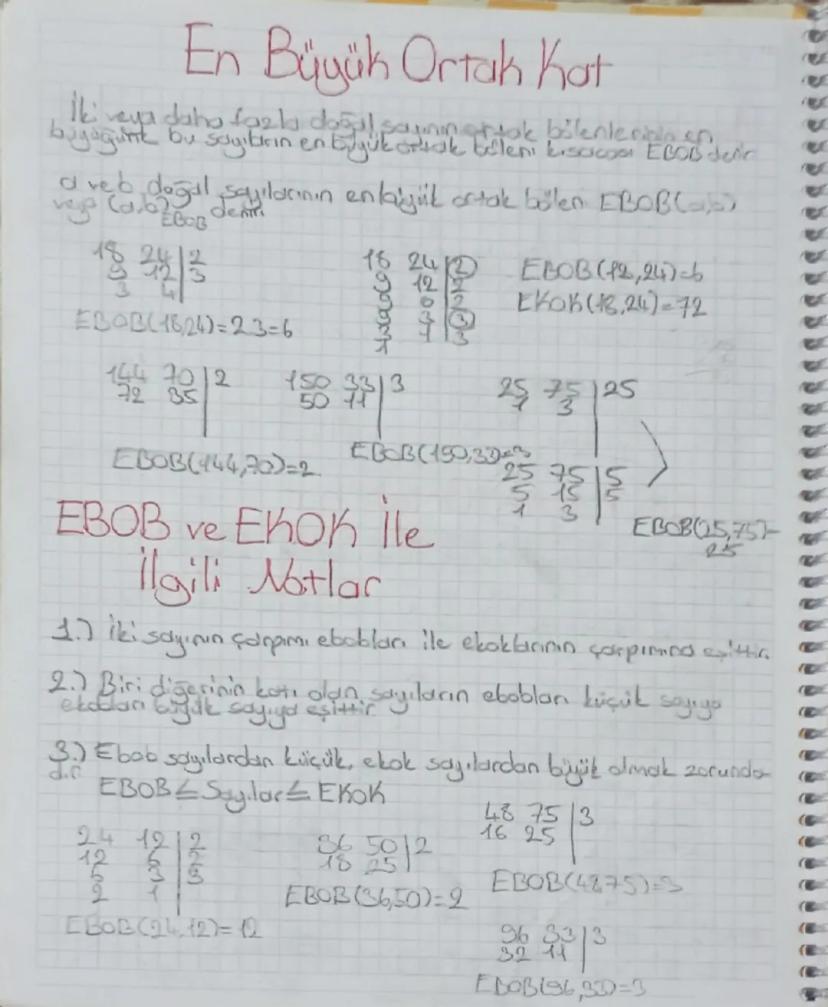 En Büyük Ortak Kat
İki veya daha fazla doğal sayının ortak bölenlerinin en
büyüğüne bu sayıların en büyük ortak böleni kısacası EBOB denir
a ve b doğal sayılarının en büyük ortak bölen EBOB(a,b)
veya (a,b)EBOB denir.
18 24 | 2
9 12 | 3
3 4
EBOB(18,24)=2.3=6
18 24 | 2
9 12 | 2
9 6 | 2
9 3 | 3
3 1 | 3
1
EBOB(12,24)=6
EKOK(18,24)=72
144 70 | 2
72 35
EBOB(144,70)=2
150 33 | 3
50 11
EBOB(150,33)=3
25 75 | 25
1 3
25 75 | 5
5 15 | 5
1 3
EBOB(25,75)=
25
EBOB ve EKOK İle
İlgili Notlar
1.) İki sayının çarpımı ebobları ile ekoklarının çarpımına eşittir.
2.) Biri diğerinin katı olan sayıların ebobları küçük sayıya
ekokları büyük sayıya eşittir
3.) Ebob sayılardan küçük, ekok sayılardan büyük olmak zorunda
dır
EBOB ≤ Sayılar ≤ EKOK
24 12 | 2
12 6 | 2
6 3 | 3
2 1
EBOB(24,12)=12
36 50 | 2
18 25
EBOB(36,50)=2
48 75 | 3
16 25
EBOB(48,75)=3
96 33 | 3
32 11
EBOB(96,33)=3